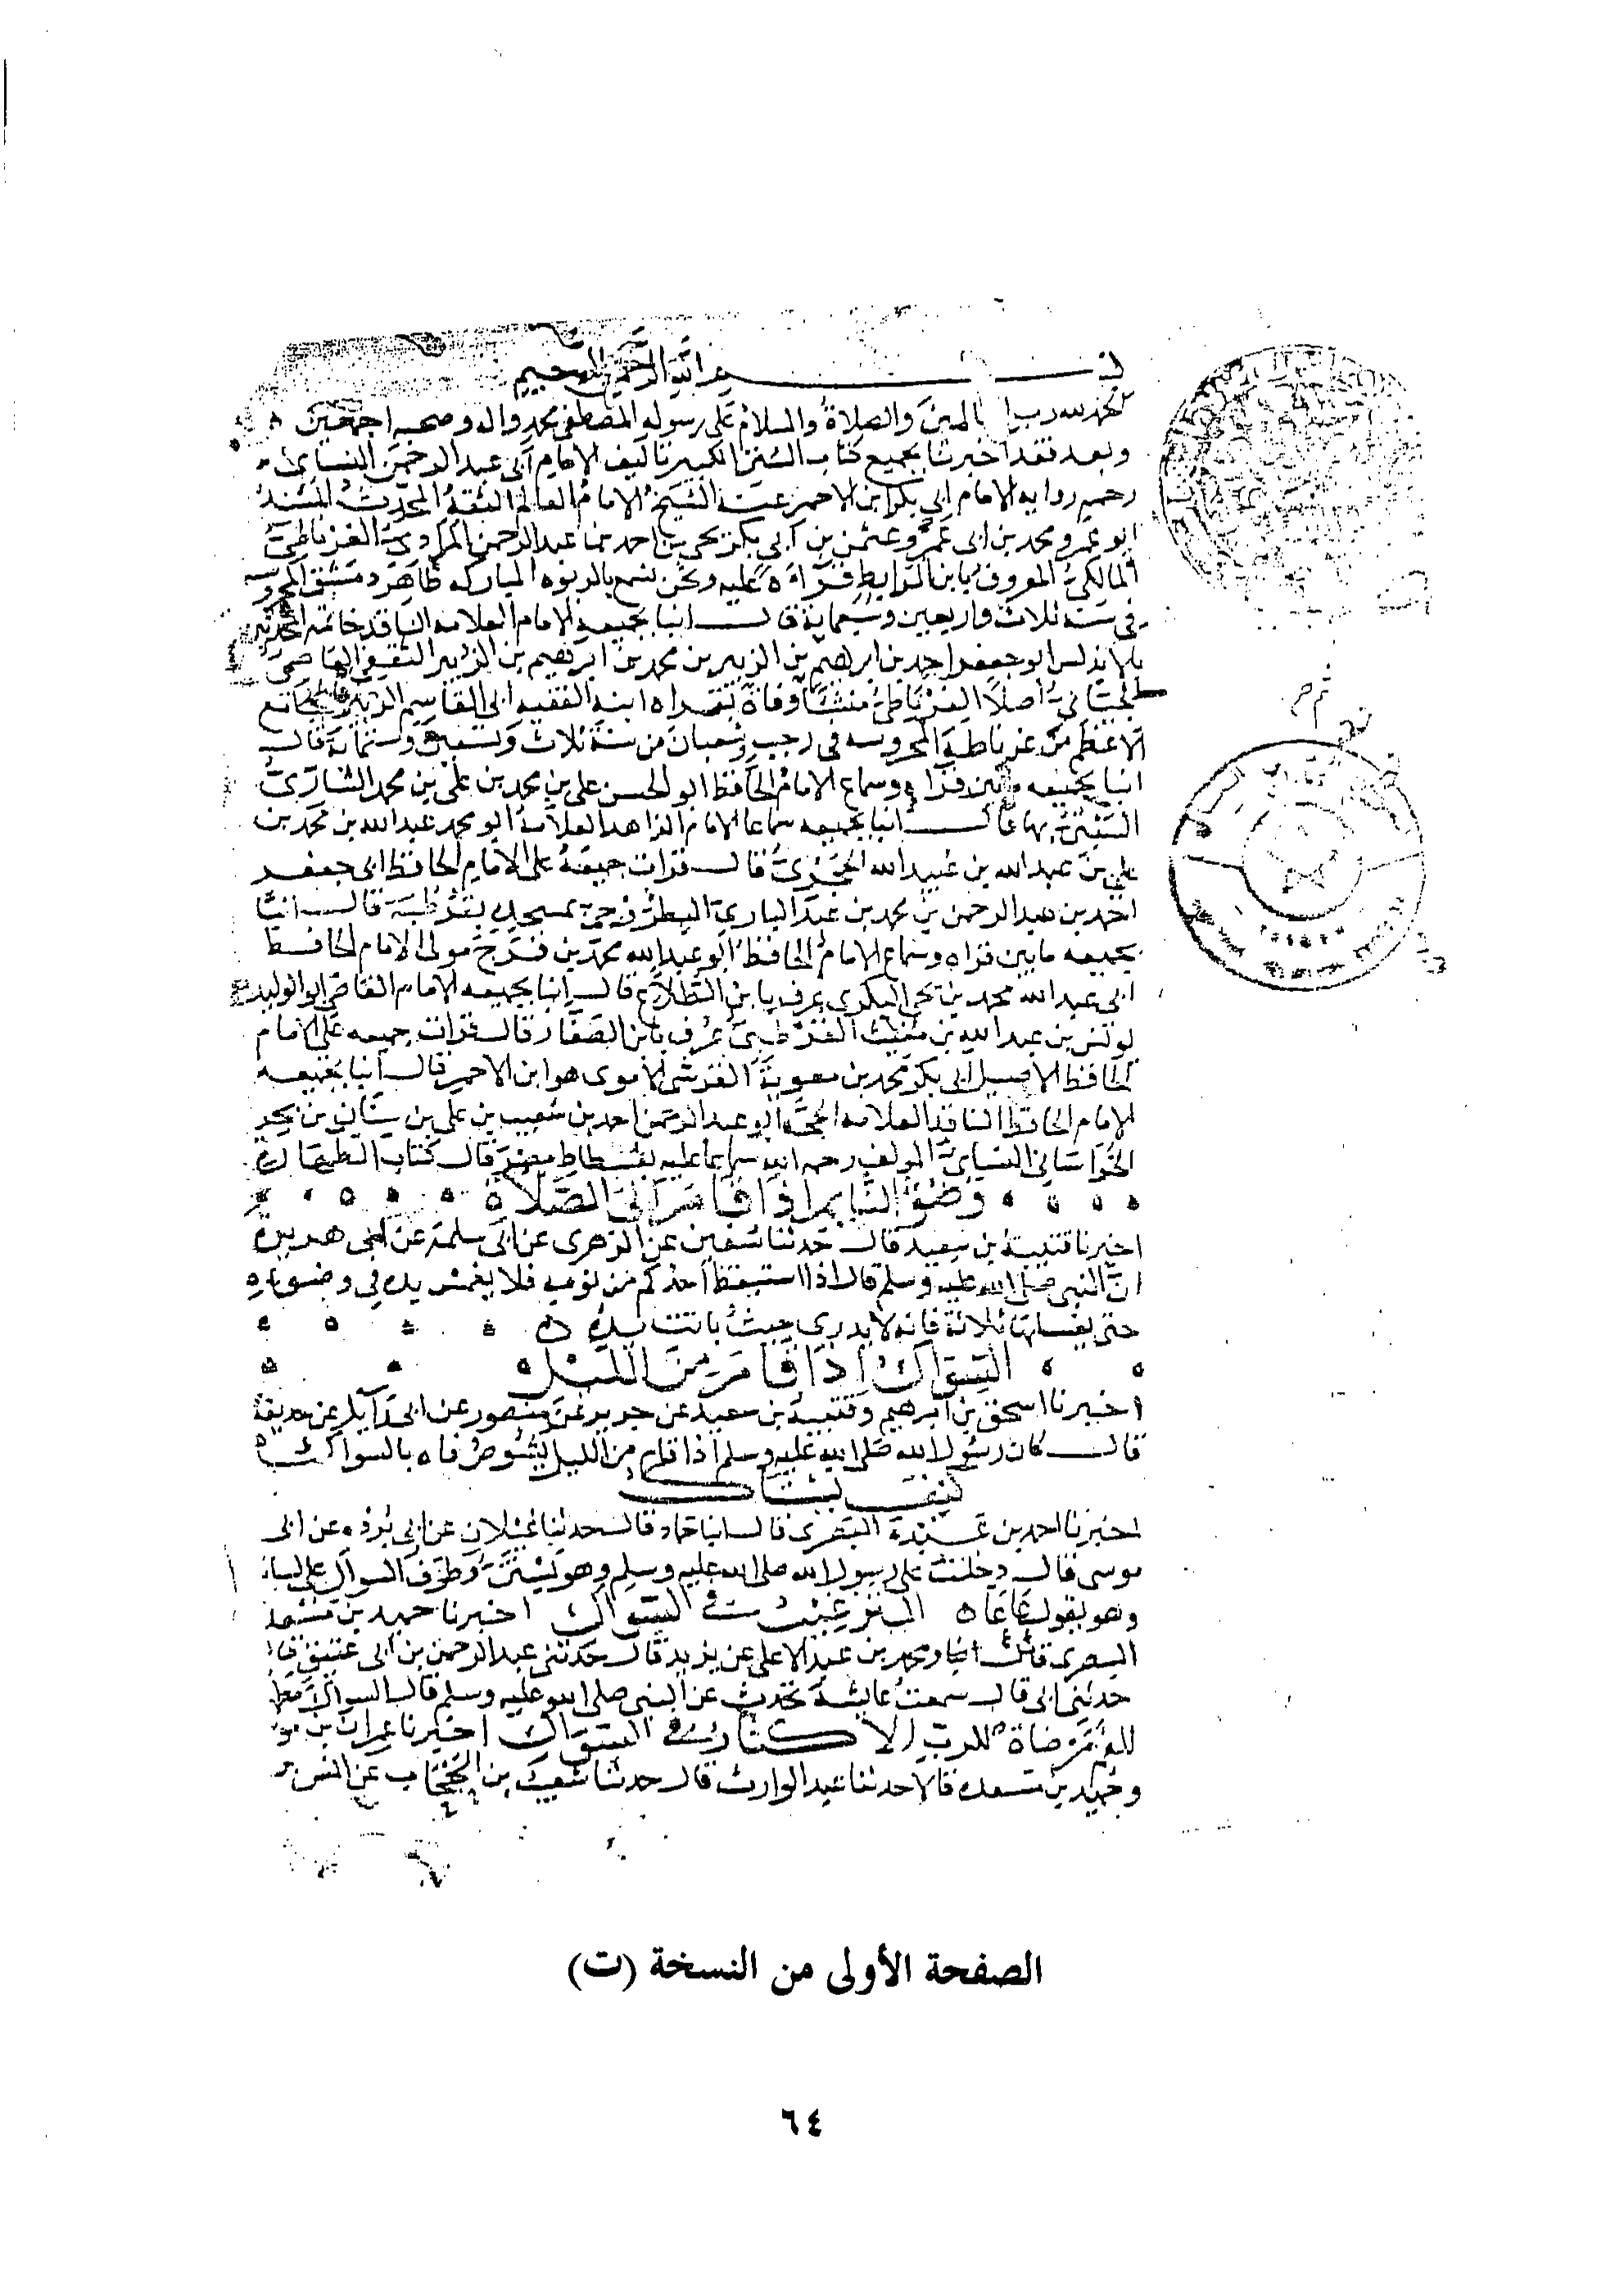 بسم الله الرحمن الرحيم
الحمد لله رب العالمين والصلاة والسلام على رسوله المصطفى محمد واله وصحبه اجمعين
وبعد فقد اخبرنا بجميع كتاب السنن الكبير تاليف الامام ابي عبد الرحمن النسائي
رحمه روايه الامام ابي بكر ابن الاحمر عنه الشيخ الامام العالم الثقة المحدث المسند
ابو عمرو محمد بن ابى عمرو عثمن بن ابي بكر يحيى بن احمد بن عبد الرحمن المرادي الغرناطي
المالكي المعروف بابن المرابط قراءة عليه ونحن نسمع بالربوه المباركه ظاهر دمشق المحروسه
في سنة ثلاث واربعين وسبعماية قال انبا بجميعه الامام العلامه الناقد خاتمة المحدثين
بالاندلس ابو جعفر احمد بن ابراهيم بن الزبير بن محمد بن ابرهيم بن الزبير الثقفي العاصمي
الجياني اصلا الغرناطي منشأ ووفاة بقراه ابنه الفقيه ابي القاسم الزبير بالجامع
الاعظم من غرناطة المحروسه في رجب وشعبان من سنة ثلاث وتسعين وستماية قال
انبا بجميعه ما بين قراه وسماع الامام الحافظ ابو الحسن علي بن محمد بن علي بن محمد الشاري
السبتي بها قال انبا بجميعه سماعا الامام الزاهد العلامة ابو محمد عبد الله بن محمد بن
علي بن عبد الله بن عبيد الله الحجري قال قرات جميعه على الامام الحافظ ابي جعفر
احمد بن عبد الرحمن بن محمد بن عبد الباري البطروجي بمسجده بقرطبة قال انبا
بجميعه ما بين قراه وسماع الامام الحافظ ابو عبد الله محمد بن فرج مولى الامام الحافظ
ابي عبد الله محمد بن يحيى البكري عرف بابن الطلاع قال انبا بجميعه الامام القاضي ابو الوليد
يونس بن عبد الله بن مغيث القرطبي عرف بابن الصفار قال قرات جميعه على الامام
الحافظ الاصيل ابي بكر محمد بن معوية القرشي الاموي هو ابن الاحمر قال انبا بجميعه
الامام الحافظ الناقد العلامه الحجة ابو عبد الرحمن احمد بن شعيب بن علي بن سنان بن بحر
الخراساني النسائي المولف رحمه الله سماعا عليه بفسطاط مصر قال كتاب الطهارة
وضوء النايم اذا قام الى الصلاة
اخبرنا قتيبة بن سعيد قال حدثنا سفين عن الزهرى عن ابى سلمة عن ابى هريرة
ان النبي صلى الله عليه وسلم قال اذا استيقظ احدكم من نومه فلا يغمس يده في وضوءه
حتى يغسلها ثلاثة فانه لا يدري حيث باتت يده
السواك اذا قام من الليل
اخبرنا اسحق بن ابرهيم وقتيبة بن سعيد عن جرير عن منصور عن ابى وايل عن حذيفة
قال كان رسول الله صلى الله عليه وسلم اذا قام من الليل يشوص فاه بالسواك
كيف يستاك
اخبرنا احمد بن عبدة البصرى قال انبا حماد قال حدثنا غيلان عن ابي بردة عن ابى
موسى قال دخلت على رسول الله صلى الله عليه وسلم وهو يستن وطرف السواك على لسانه
وهو يقول عاعاه الترغيب في السواك اخبرنا حميد بن مسعدة
البصرى ومحمد بن عبد الاعلى عن يزيد قال حدثني عبد الرحمن بن ابى عتيق قال
حدثني ابى قال سمعت عايشة تحدث عن النبى صلى الله عليه وسلم قال السواك مطهرة
للفم مرضاة للرب الاكثار في السواك اخبرنا عمران بن موسى
وحميد بن مسعده قالا حدثنا عبد الوارث قال حدثنا شعيب بن الحبحاب عن انس
الصفحة الأولى من النسخة (ت)
٦٤